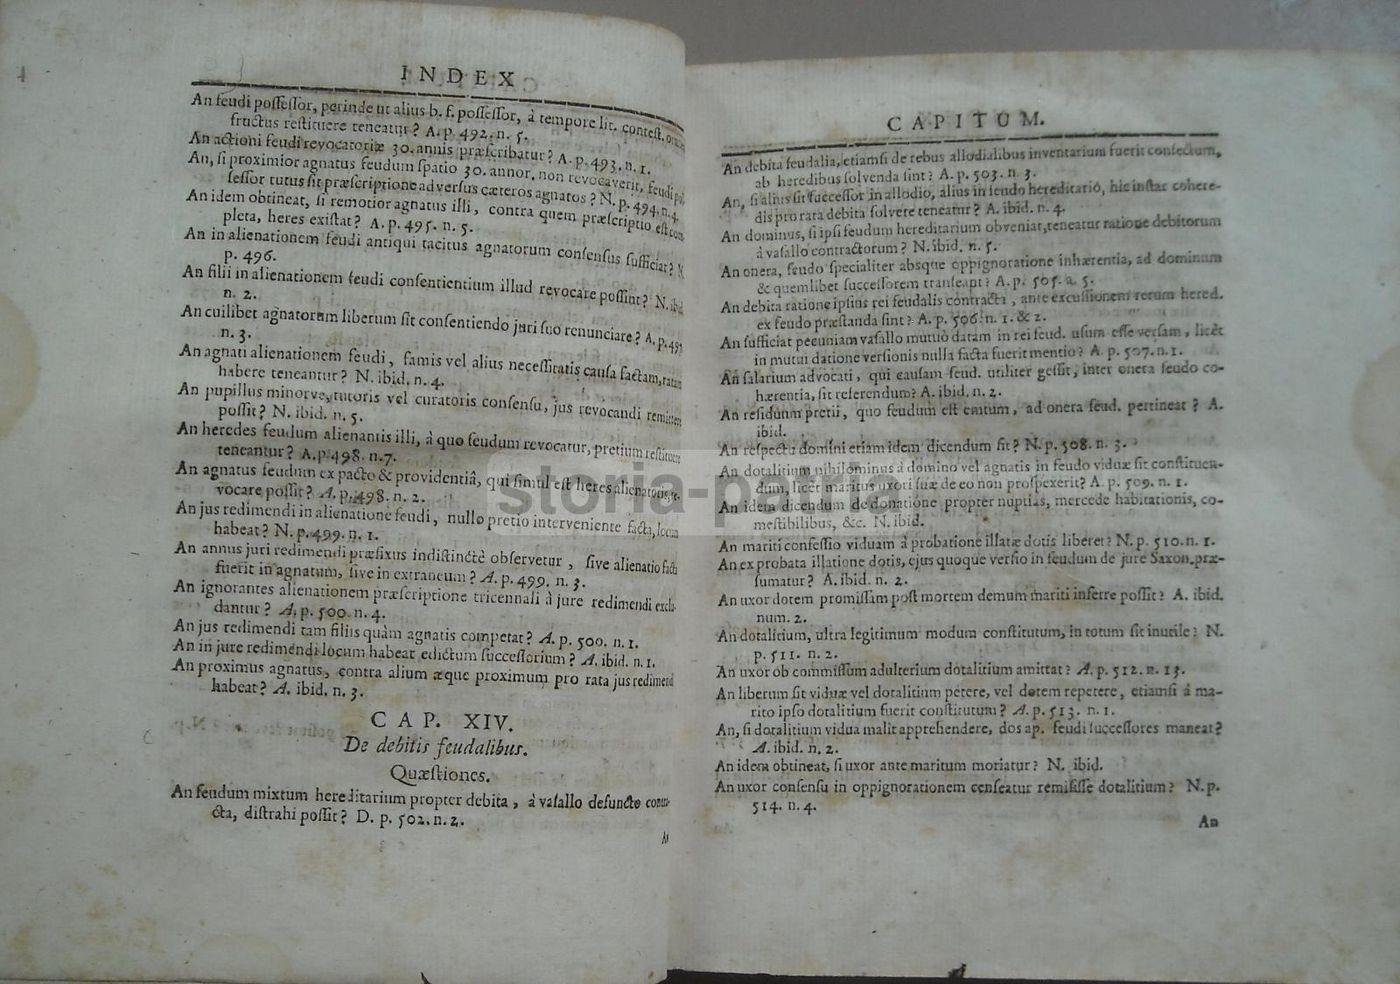 INDEX
An feudi poſſeſſor, perinde ut alius b. f. poſſeſſor, à tempore lit. conteſt.
fructus reſtituere teneatur? A. p. 492. n. 5.
An actioni feudi revocatoriæ 30. annis præſcribatur? A. p. 493. n. 1.
An, ſi proximior agnatus feudum ſpatio 30. annor. non revocaverit, feudi
ſeſſor tutus ſit præſcriptione adverſus cæteros agnatos? N. p. 494. n. 4.
An idem obtineat, ſi remotior agnatus illi, contra quem præſcriptio eſt com-
pleta, heres exiſtat? A. p. 495. n. 5.
An in alienationem feudi antiqui tacitus agnatorum conſenſus ſufficiat? N.
p. 496.
An filii in alienationem feudi conſentientium illud revocare poſſint? N. ibid.
n. 2.
An cuilibet agnatorum liberum ſit conſentiendo juri ſuo renunciare? A. p. 497.
n. 3.
An agnati alienationem feudi, famis vel alius neceſſitatis cauſa factam, ratam
habere teneantur? N. ibid. n. 4.
An pupillus minorve, tutoris vel curatoris conſenſu, jus revocandi remittere
poſſit? N. ibid. n. 5.
An heredes feudum alienantis illi, à quo feudum revocatur, pretium reſtituere
teneantur? A. p. 498. n. 7.
An agnatus feudum ex pacto & providentiâ, qui ſimul eſt heres alienatoris, re-
vocare poſſit? A. p. 498. n. 2.
An jus redimendi in alienatione feudi, nullo pretio interveniente facta, locum
habeat? N. p. 499. n. 1.
An annus juri redimendi præfixus indiſtinctè obſervetur, ſive alienatio facta
fuerit in agnatum, ſive in extraneum? A. p. 499. n. 3.
An ignorantes alienationem præſcriptione tricennali à jure redimendi exclu-
dantur? A. p. 500. n. 4.
An jus redimendi tam filiis quàm agnatis competat? A. p. 500. n. 1.
An in jure redimendi locum habeat edictum ſucceſſorium? A. ibid. n. 1.
An proximus agnatus, contra alium æque proximum pro rata jus redimendi
habeat? A. ibid. n. 3.
CAP. XIV.
De debitis feudalibus.
Quæſtiones.
An feudum mixtum hereditarium propter debita, à vaſallo defuncto contra-
cta, diſtrahi poſſit? D. p. 502. n. 2.
CAPITUM.
An debita feudalia, etiamſi de rebus allodialibus inventarium fuerit confectum,
ab heredibus ſolvenda ſint? A. p. 503. n. 3.
An, ſi alius ſit ſucceſſor in allodio, alius in feudo hereditario, hic inſtar cohere-
dis pro rata debita ſolvere teneatur? A. ibid. n. 4.
An dominus, ſi ipſi feudum hereditarium obveniat, teneatur ratione debitorum
à vaſallo contractorum? N. ibid. n. 5.
An onera, feudo ſpecialiter absque oppignoratione inhærentia, ad dominum
& quemlibet ſucceſſorem tranſeant? A. p. 505. n. 5.
An debita ratione ipſius rei feudalis contracta, ante excuſſionem rerum hered.
ex feudo præſtanda ſint? A. p. 506. n. 1. & 2.
An ſufficiat pecuniam vaſallo mutuò datam in rei feud. uſum eſſe verſam, licèt
in mutui datione verſionis nulla facta fuerit mentio? A. p. 507. n. 1.
An ſalarium advocati, qui cauſam feud. utiliter geſſit, inter onera feudo co-
hærentia, ſit referendum? A. ibid. n. 2.
An reſiduum pretii, quo feudum eſt emtum, ad onera feud. pertineat? A.
ibid.
An reſpectu domini etiam idem dicendum ſit? N. p. 508. n. 3.
An dotalitium nihilominus à domino vel agnatis in feudo viduæ ſit conſtituen-
dum, licèt maritus uxori ſuæ de eo non proſpexerit? A. p. 509. n. 1.
An idem dicendum de donatione propter nuptias, mercede habitationis, co-
meſtibilibus, &c. N. ibid.
An mariti confeſſio viduam à probatione illatæ dotis liberet? N. p. 510. n. 1.
An ex probata illatione dotis, ejus quoque verſio in feudum de jure Saxon. præ-
ſumatur? A. ibid. n. 2.
An uxor dotem promiſſam poſt mortem demum mariti inferre poſſit? A. ibid.
num. 2.
An dotalitium, ultra legitimum modum conſtitutum, in totum ſit inutile? N.
p. 511. n. 2.
An uxor ob commiſſum adulterium dotalitium amittat? A. p. 512. n. 13.
An liberum ſit viduæ vel dotalitium petere, vel dotem repetere, etiamſi à ma-
rito ipſo dotalitium fuerit conſtitutum? A. p. 513. n. 1.
An, ſi dotalitium vidua malit apprehendere, dos ap. feudi ſucceſſores maneat?
A. ibid. n. 2.
An idem obtineat, ſi uxor ante maritum moriatur? N. ibid.
An uxor conſenſu in oppignorationem cenſeatur remiſiſſe dotalitium? N. p.
514. n. 4.
An
storia-patria